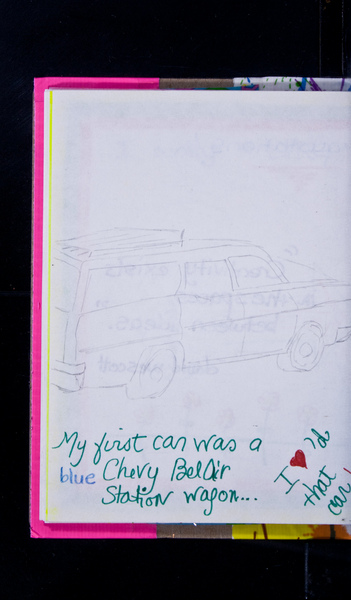 My first car was a
blue Chevy BelAir
Station wagon...
I ♥'d
that
car!